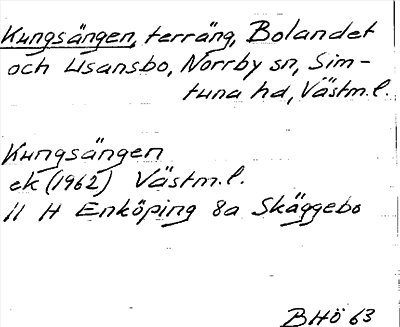 Kungsängen, terräng, Bolandet
och Usansbo, Norrby sn, Sim-
tuna hd, Västm.l.
Kungsängen
ek (1962) Västm.l.
11 H Enköping 8a Skäggebo
BHÖ 63